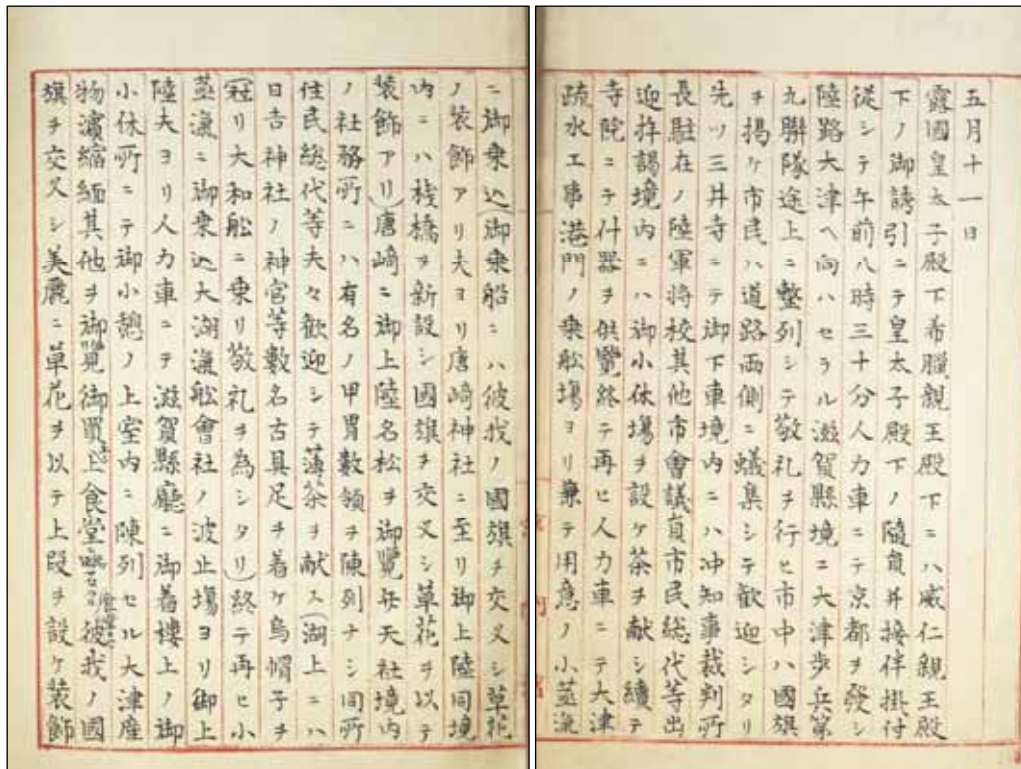 五月十一日
露國皇太子殿下希臘親王殿下ニハ威仁親王殿
下ノ御誘引ニテ皇太子殿下ノ隨員并接伴掛付
從シテ午前八時三十分人力車ニテ京都ヲ發シ
陸路大津ヘ向ハセラル滋賀縣境ニ大津歩兵第
九聯隊途上ニ整列シテ敬礼ヲ行ヒ市中ハ國旗
ヲ揚ケ市民ハ道路両側ニ蟻集シテ歡迎シタリ
先ツ三井寺ニテ御下車境内ニハ冲知事裁判所
長駐在ノ陸軍将校其他市會議員市民総代等出
迎拝謁境内ニハ御小休場ヲ設ケ茶ヲ献シ續テ
寺院ニテ什器ヲ供覽終テ再ヒ人力車ニテ大津
疏水工事港門ノ乗舩場ヨリ兼テ用意ノ小蒸滊
ニ御乗込(御乗船ニハ彼我ノ國旗ヲ交叉シ草花
ノ装飾アリ夫ヨリ唐崎神社ニ至リ御上陸同境
内ニハ桟橋ヲ新設シ國旗ヲ交叉シ草花ヲ以テ
装飾アリ)唐崎ニ御上陸名松ヲ御覽天社境内
ノ社務所ニハ有名ノ甲冑數領ヲ陳列ナシ同所
住民総代等夫々歡迎シテ薄茶ヲ献ス(湖上ニハ
日吉神社ノ神官等數名古具足ヲ着ケ烏帽子ヲ
冠リ大和舩ニ乗リ敬礼ヲ為シタリ)終テ再ヒ小
蒸滊ニ御乗込大湖滊舩會社ノ波止場ヨリ御上
陸夫ヨリ人力車ニテ滋賀縣廳ニ御着樓上ノ御
小休所ニテ御小憩ノ上室内ニ陳列セル大津産
物濱縮緬其他ヲ御覽御買上食堂彼我ノ國
旗ヲ交叉シ美麗ニ草花ヲ以テ上段ヲ設ケ装飾